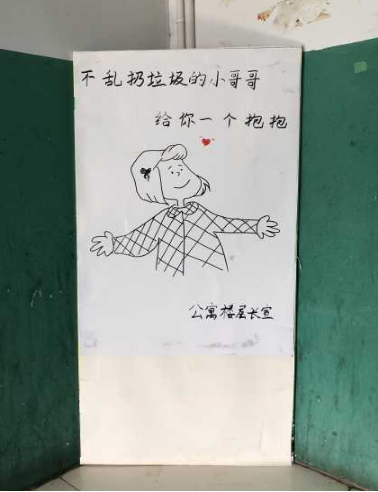 不乱扔垃圾的小哥哥
给你一个抱抱
公寓楼层长宣